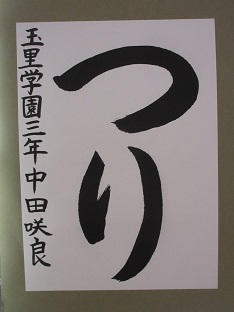 つり
玉里学園三年中田咲良